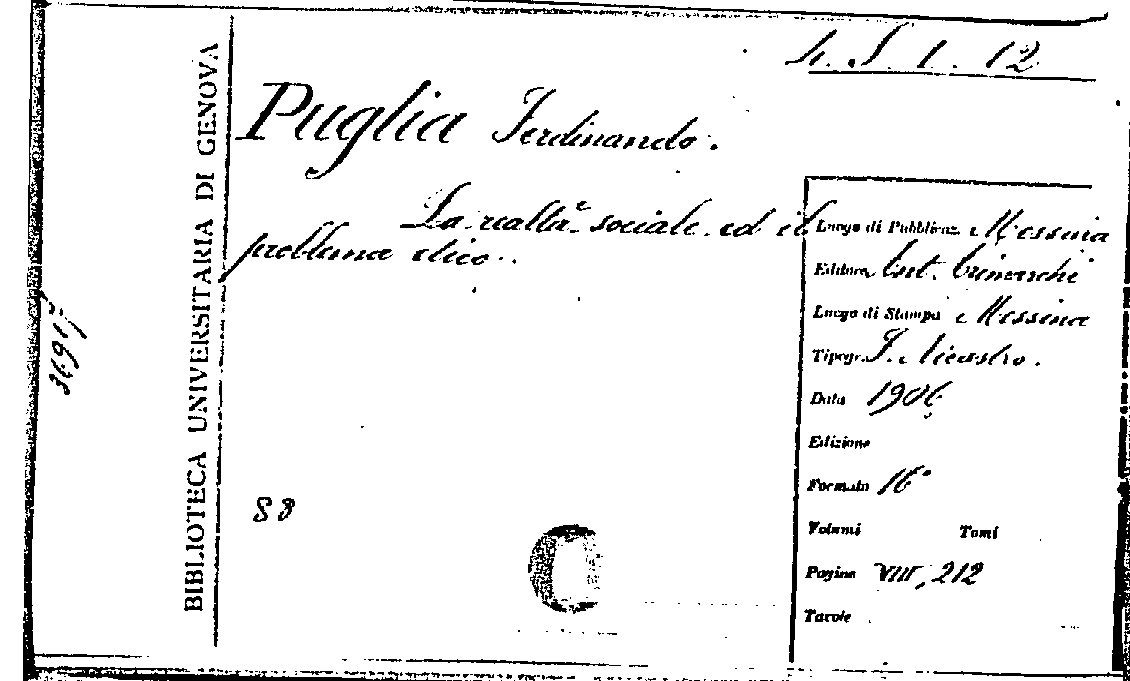 4. J. 1. 12
BIBLIOTECA UNIVERSITARIA DI GENOVA
Puglia Ferdinando.
La realtà sociale ed il
problema etico.
Luogo di Pubblicaz. Messina
Editore Ist. Crimarchi
Luogo di Stampa Messina
Tipogr. F. Nicastro.
Data 1906
Edizione
Formato 16°
Volumi Tomi
Pagine VIII, 212
Tavole
S B